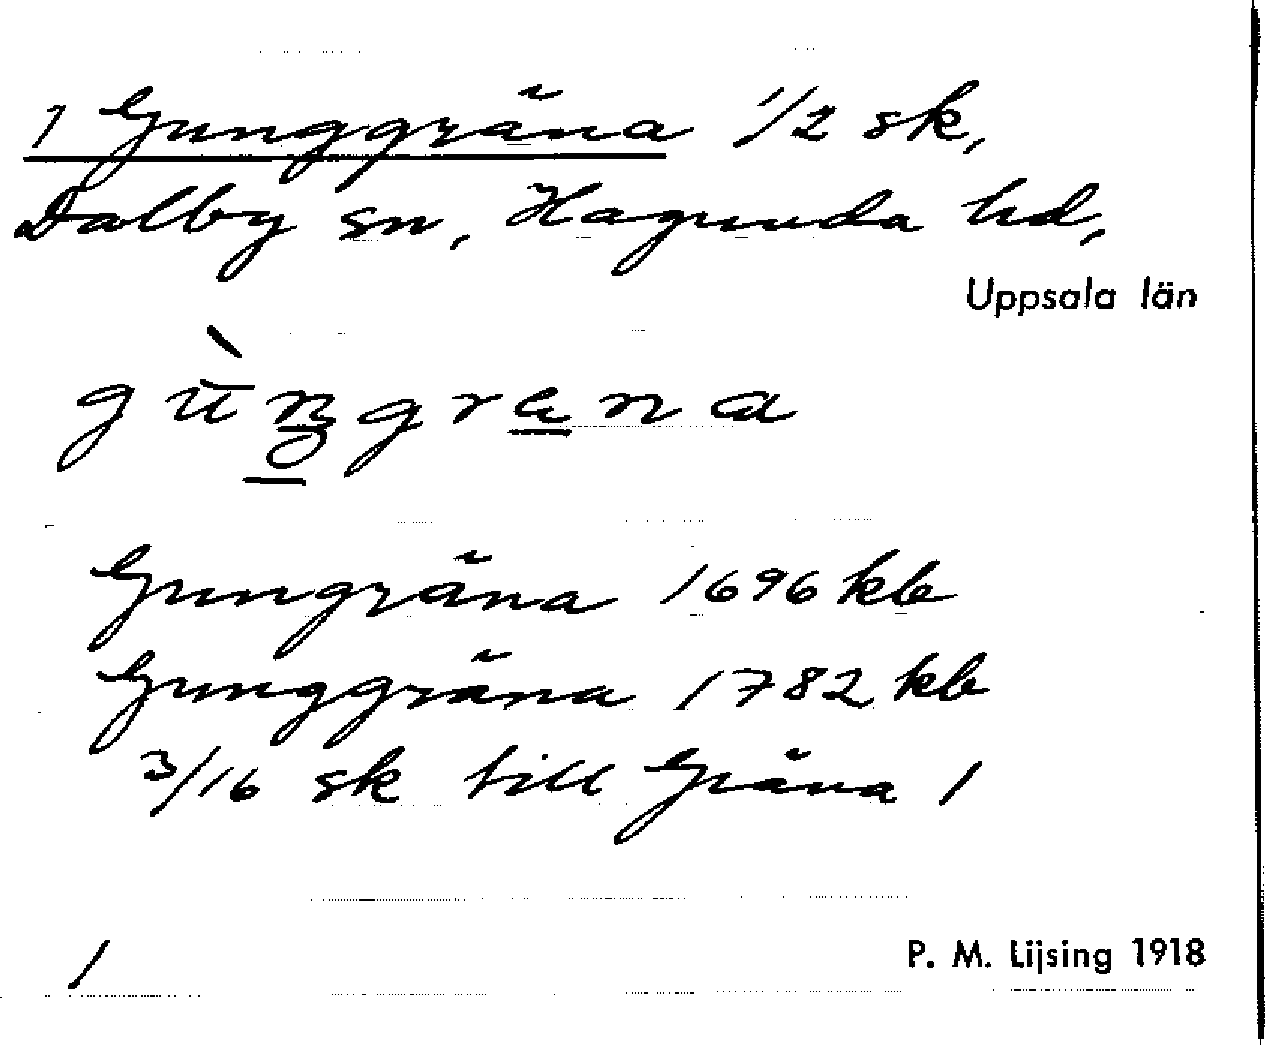 1 Gunggräna 1/2 sk,
Dalby sn, Hagunda hd,
Uppsala län
Gungräna 1696 kb
Gunggräna 1782 kb
3/16 sk till Gräna 1
1
P. M. Lijsing 1918